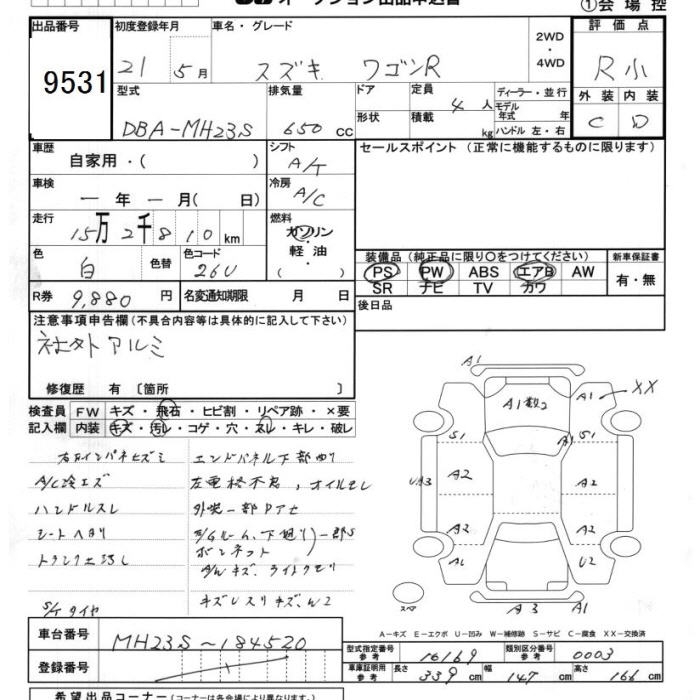 ①会 場 控
出品番号 初度登録年月 車名・グレード 2WD ・ 4WD 評 価 点
9531 21 5月 スズキ ワゴンR R小
型式 排気量 ドア 定員 ディーラー・並行 外 装 内 装
DBA-MH23S 650 CC 形状 4人 積載 kg モデル年式 年 ハンドル 左・右 C D
車歴 自家用・( ) シフト A/T セールスポイント (正常に機能するものに限ります)
車検 ー年ー月( 日) 冷房 A/C
走行 15万2千810km 燃料 ガソリン ・ 軽 油 ・( )
色 白 色替 色コード 26U 装備品(純正品に限り〇をつけてください) 新車保証書
PS PW ABS エアB AW 有・無
SR ナビ TV カワ
R券 9,880 円 名変通知期限 月 日 後日品
注意事項申告欄(不具合内容等は具体的に記入して下さい)
社外アルミ
修復歴 有 〔箇所 〕
検査員 FW キズ・飛石・ヒビ割・リペア跡・×要
記入欄 内装 キズ・汚レ・コゲ・穴・ヌレ・キレ・破レ
エンドパネル下部曲り
A/C冷エズ 左電格不良,オイルモレ
ハンドルスレ
シートヘタリ
ボンネット
S/Tタイヤ
A1
A1数2 A1 XX
S1 A1 S1
UA3 A2 A2
A2 A2
A1 U2
スペア A3 A1
A-キズ E-エクボ U-凹み W-補修跡 S-サビ C-腐食 XX-交換済
車台番号 MH23S~184520
登録番号
型式指定番号 参考 16169 類別区分番号 参考 0003
車庫証明用 参考 長さ 339 cm 幅 147 cm 高さ 166 cm
希望出品コーナー(コーナーは各会場により異なります)